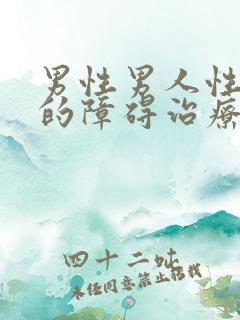 男性男人性
的障碍治療
四十二吠
未经同意禁止转载